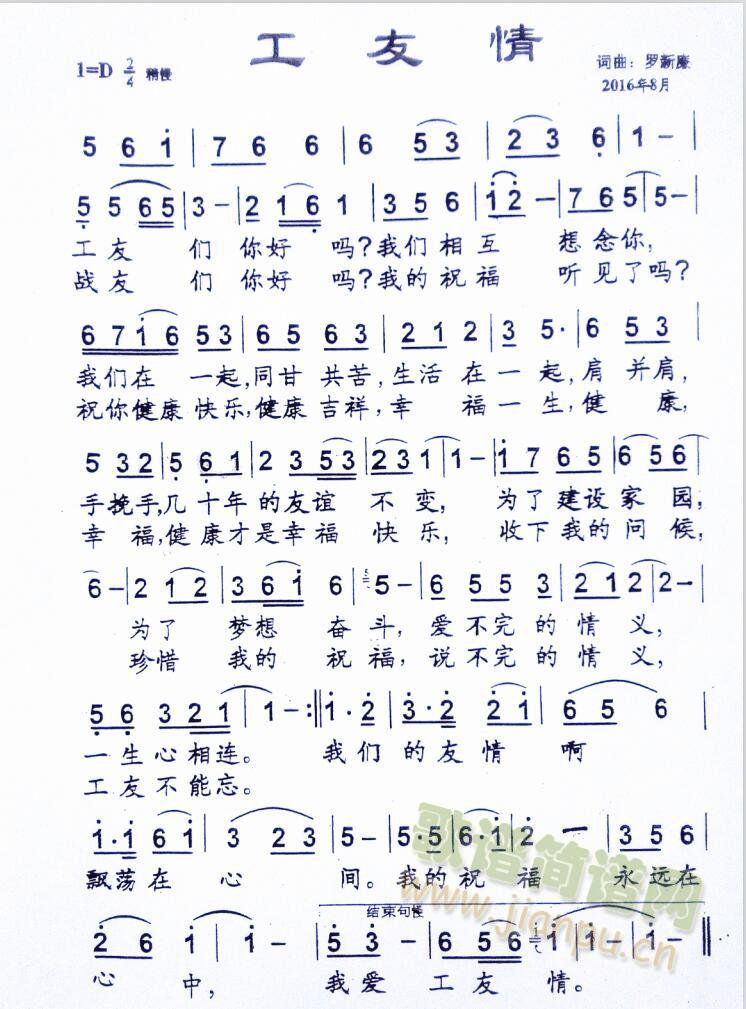 工友情
1=D 2/4 稍慢
词曲：罗新廉
2016年8月
5 6 i | 7 6 6 | 6 5 3 | 2 3 6 | 1 – |
5 5 6 5 | 3 – | 2 1 6 1 | 3 5 6 | i 2 – | 7 6 5 | 5 – |
工友 们 你好 吗？我们相互 想念你，
战友 们 你好 吗？我的祝福 听见了吗？
6 7 i 6 5 3 | 6 5 6 3 | 2 1 2 | 3 5 · | 6 5 3 |
我们在 一起，同甘 共苦，生活 在一 起，肩 并肩，
祝你健康 快乐，健康吉祥，幸 福一生，健 康，
5 3 2 | 5 6 1 | 2 3 5 3 | 2 3 1 | 1 – | i 7 6 5 | 6 5 6 |
手挽手，几十年的友谊 不变， 为了建设家园，
幸 福，健康才是幸福 快乐， 收下我的问候，
6 – | 2 1 2 | 3 6 i 6 | 5 – | 6 5 5 3 | 2 1 2 | 2 – |
为了 梦想 奋斗，爱不完的情义，
珍惜 我的 祝福，说不完的情义，
5 6 3 2 1 | 1 – :‖ i · 2 | 3 · 2 2 i | 6 5 6 |
一生心相连。 我们的友情 啊
工友不能忘。
i · i 6 i | 3 2 3 | 5 – | 5 · 5 | 6 · i | 2 – | 3 5 6 |
飘荡在 心 间。我的祝 福 永远在
结束句慢
2 6 i | i – | 5 3 – | 6 5 6 | i | i – | i – ‖
心 中， 我爱 工友 情。
歌谱简谱网
www.jianpu.cn